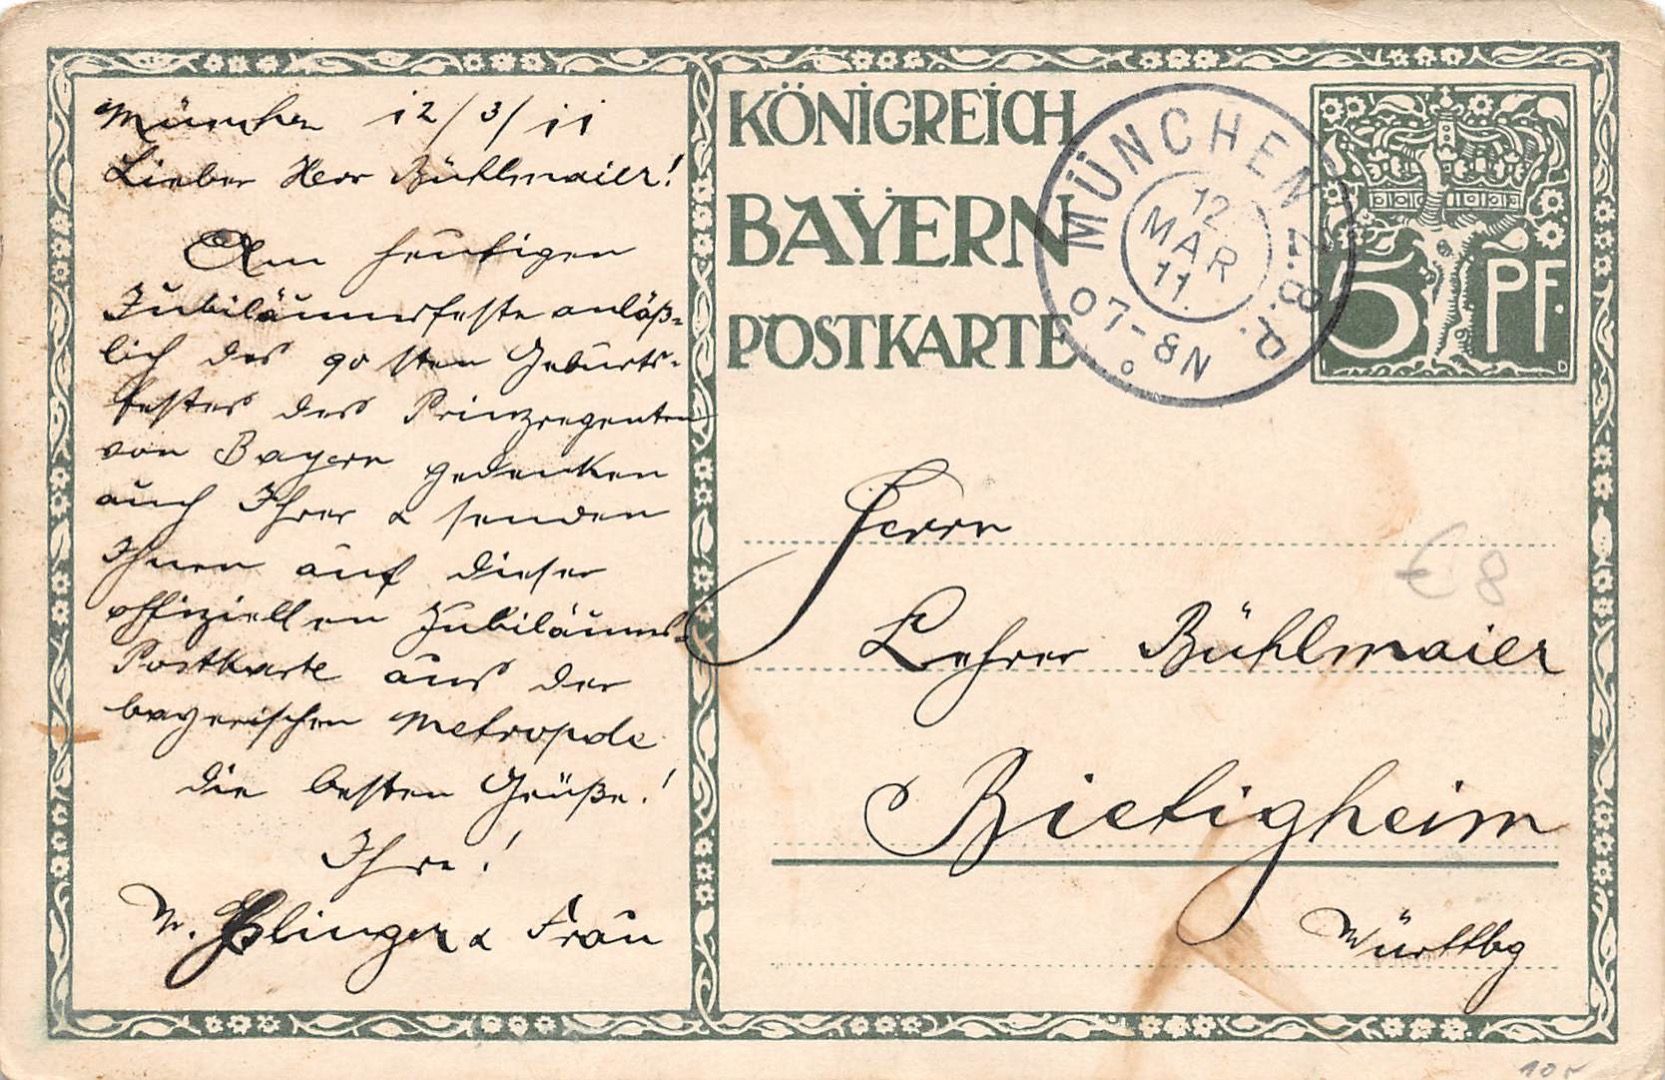 München 12/3/11
Lieber Herr Bühlmaier!
Am heutigen
Jubiläumsfeste anläß-
lich des 90sten Geburts-
festes des Prinzregenten
von Bayern gedenken
auch Ihrer & senden
Ihnen auf dieser
offiziellen Jubiläums-
Postkarte aus der
bayerischen Metropole
die besten Grüße!
Ihre!
Eßlinger & Frau
KÖNIGREICH
BAYERN
POSTKARTE
MÜNCHEN 2.B.P.
12.
MAR
11.
07-8N
5 PF.
Herrn
Lehrer Bühlmaier
Bietigheim
Württbg
€8